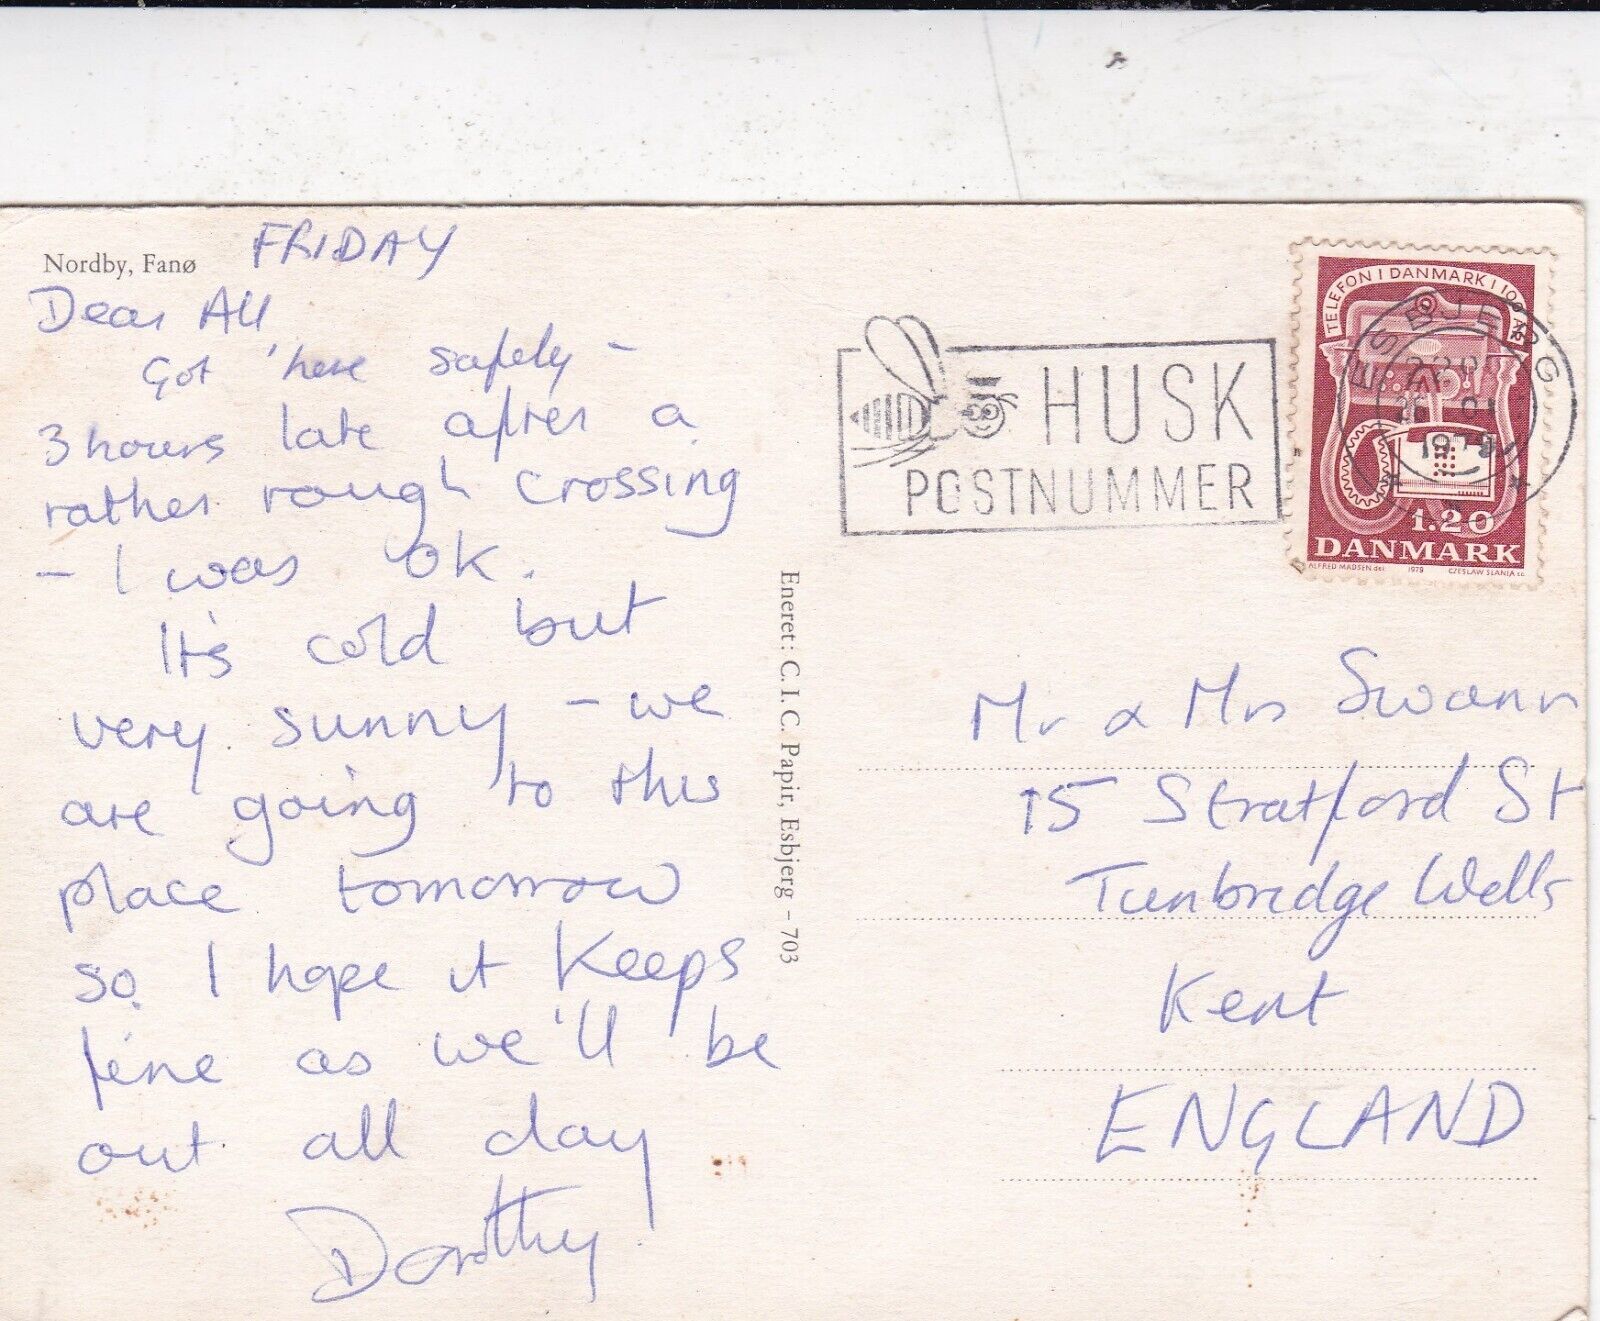 Nordby, Fanø
FRIDAY
Dear All
Got here safely -
3 hours late after a
rather rough crossing
- I was OK.
It's cold but
very sunny - we
are going to this
place tomorrow
so I hope it keeps
fine as we'll be
out all day
Dorothy
Eneret: C.I.C. Papir, Esbjerg - 703
HUSK
POSTNUMMER
TELEFON I DANMARK I 100 ÅR
ESBJERG
1979
1.20
DANMARK
ALFRED MADSEN del. 1979 CZESLAW SLANIA sc.
Mr & Mrs Swann
15 Stratford St
Tunbridge Wells
Kent
ENGLAND